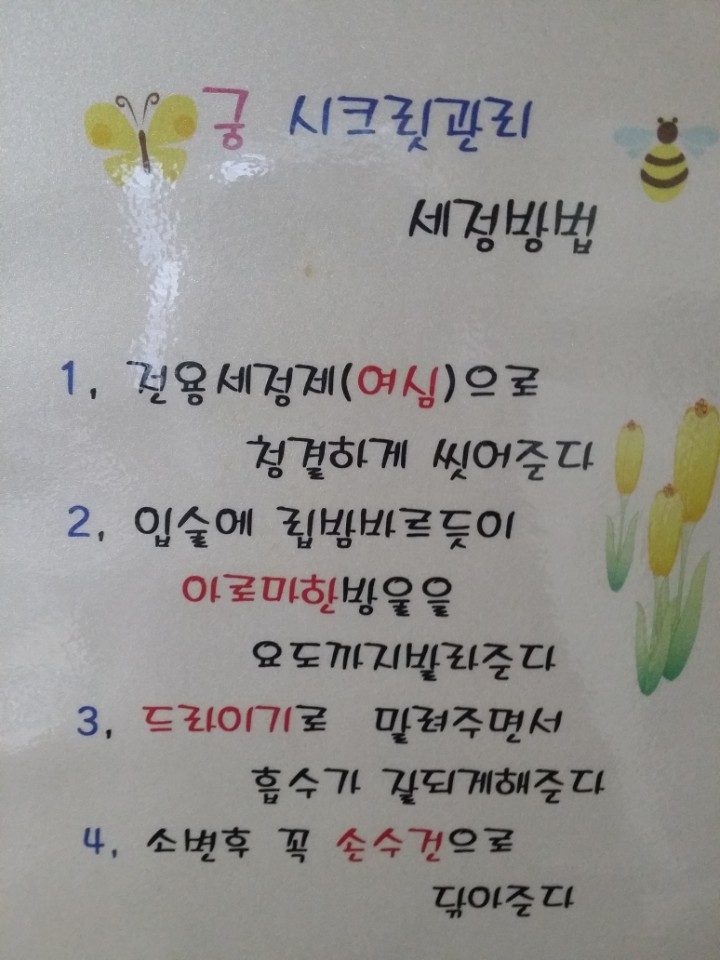 궁 시크릿관리
세정방법
1, 전용세정제(여심)으로
청결하게 씻어준다
2, 입술에 립밤바르듯이
아로마한방울을
요도까지발라준다
3, 드라이기로 말려주면서
흡수가 잘되게해준다
4, 소변후 꼭 손수건으로
닦아준다